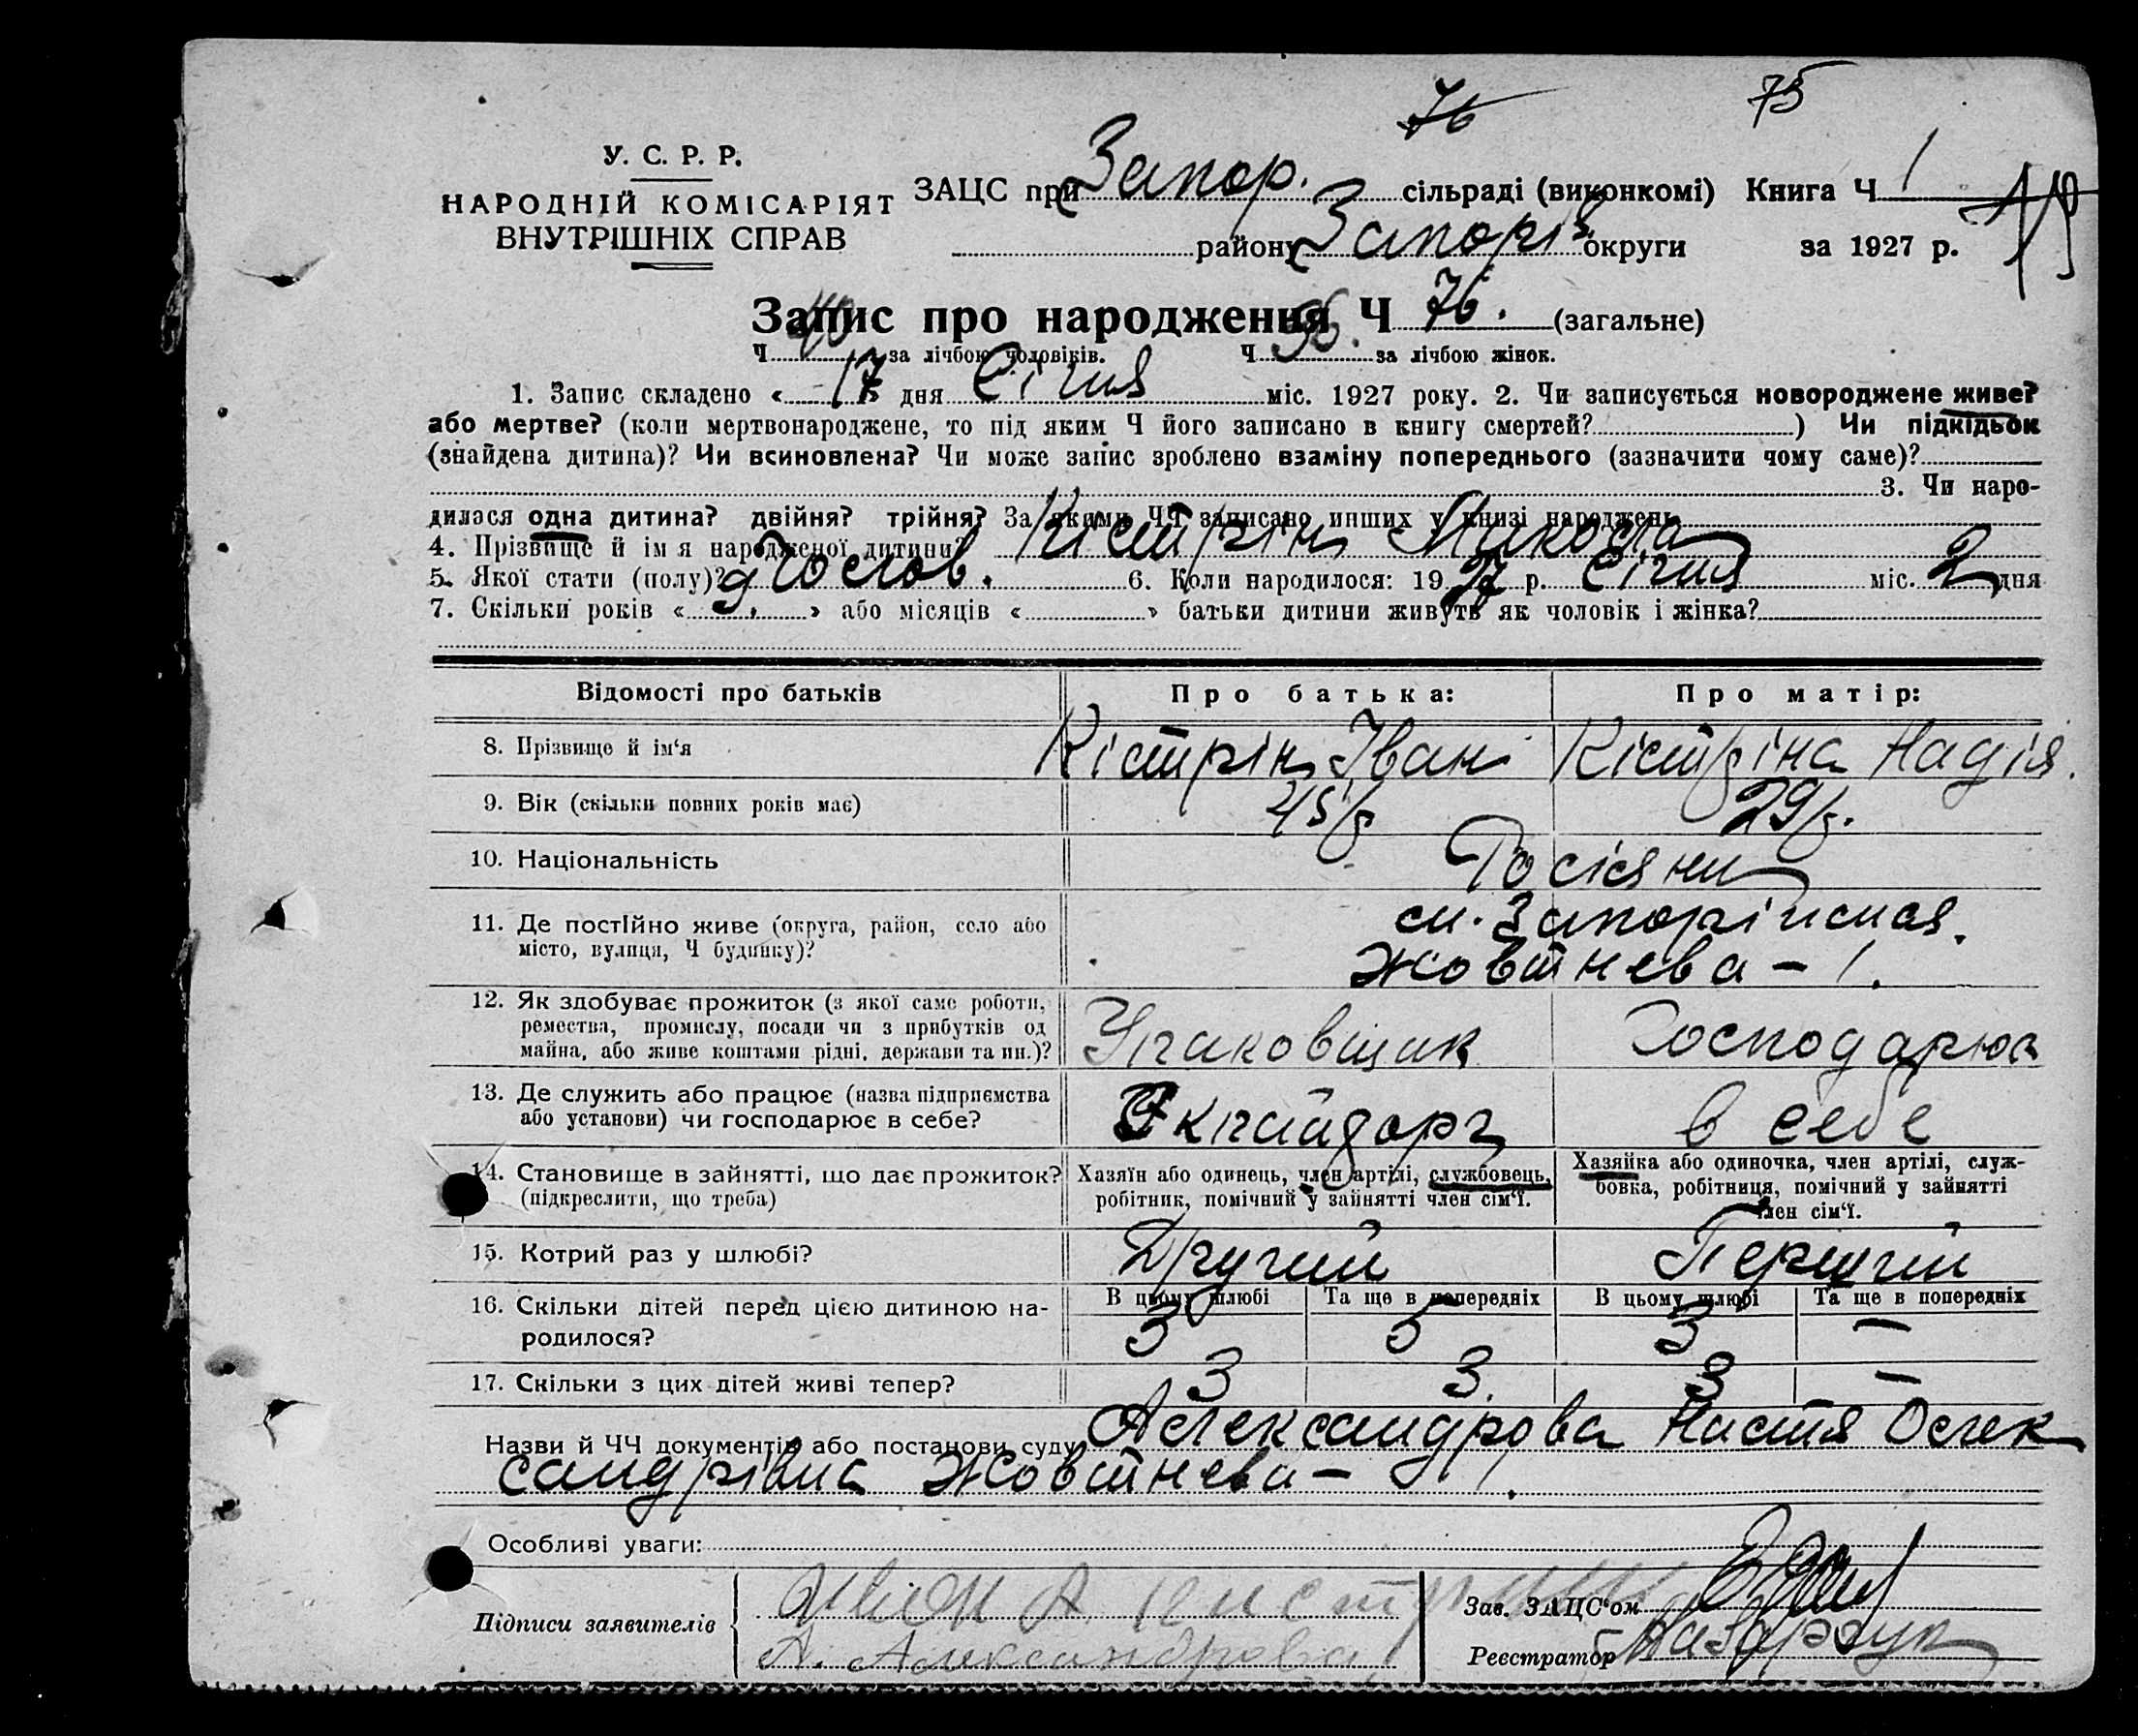 76 75
У. С. Р. Р.
НАРОДНІЙ КОМІСАРІЯТ
ВНУТРІШНІХ СПРАВ
ЗАЦС при Запор. сільраді (виконкомі) Книга Ч 1
району Запоріз округи за 1927 р.
Запис про народження Ч 76. (загальне)
Ч 40 за лічбою чоловіків. Ч 36. за лічбою жінок.
1. Запис складено « 17 » дня Січня міс. 1927 року. 2. Чи записується новороджене живе?
або мертве? (коли мертвонароджене, то під яким Ч його записано в книгу смертей? ) Чи підкідьок
(знайдена дитина)? Чи всиновлена? Чи може запис зроблено взаміну попереднього (зазначити чому саме)?
3. Чи наро-
дилася одна дитина? двійня? трійня? За якими ЧЧ записано инших у книзі народжень
4. Прізвище й ім я народженої дитини? Кістрін Микола
5. Якої стати (полу)? чолов. 6. Коли народилося: 19 27 р. Січня міс. 2 дня
7. Скільки років « 9 » або місяців « » батьки дитини живуть як чоловік і жінка?
Відомості про батьків Про батька: Про матір:
8. Прізвище й ім‘я Кістрін Іван Кістріна Надія.
9. Вік (скільки повних років має) 45/р 29/р.
10. Національність Росіяни
11. Де постійно живе (округа, район, село або
місто, вулиця, Ч будинку)?
м. Запоріжжя.
Жовтнева – 1.
12. Як здобуває прожиток (з якої саме роботи,
ремества, промислу, посади чи з прибутків од
майна, або живе коштами рідні, держави та ин.)?
Упаковщик Господарює
13. Де служить або працює (назва підприємства
або установи) чи господарює в себе?
в себе
14. Становище в зайнятті, що дає прожиток?
(підкреслити, що треба)
Хазяїн або одинець, член артілі, службовець,
робітник, помічний у зайнятті член сім‘ї.
Хазяйка або одиночка, член артілі, служ-
бовка, робітниця, помічний у зайнятті
член сім‘ї.
15. Котрий раз у шлюбі? Другий Перший
16. Скільки дітей перед цією дитиною на-
родилося?
В цьому шлюбі Та ще в попередніх В цьому шлюбі Та ще в попередніх
3 5 3 –
17. Скільки з цих дітей живі тепер? 3 3. 3 –
Назви й ЧЧ документів або постанови суду Александрова Настя Олек
сандрівна Жовтнева – 1.
Особливі уваги:
Підписи заявителів
А. Александрова
Зав. ЗАЦС‘ом
Реєстратор Назарчук